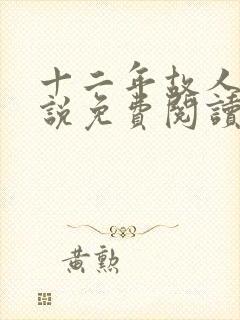 十二年故人
說免費閱讀
黃勲